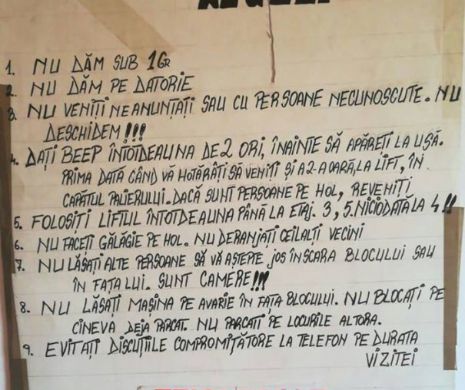 1. NU DĂM SUB 1GR
2. NU DĂM PE DATORIE
3. NU VENIȚI NEANUNȚAȚI SAU CU PERSOANE NECUNOSCUTE. NU
DESCHIDEM!!!
4. DAȚI BEEP ÎNTOTDEAUNA DE 2 ORI, ÎNAINTE SĂ APĂREȚI LA UȘĂ.
PRIMA DATĂ CÂND VĂ HOTĂRÂȚI SĂ VENIȚI ȘI A 2-A OARĂ, LA LIFT, ÎN
CAPĂTUL PALIERULUI. DACĂ SUNT PERSOANE PE HOL, REVENIȚI
5. FOLOSIȚI LIFTUL ÎNTOTDEAUNA PÂNĂ LA ETAJ. 3, 5. NICIODATĂ LA 4!!
6. NU FACEȚI GĂLĂGIE PE HOL. NU DERANJAȚI CEILALȚI VECINI
7. NU LĂSAȚI ALTE PERSOANE SĂ VĂ AȘTEPTE JOS ÎN SCARA BLOCULUI SAU
ÎN FAȚA LUI. SUNT CAMERE!!!
8. NU LĂSAȚI MAȘINA PE AVARIE ÎN FAȚA BLOCULUI. NU BLOCAȚI PE
CINEVA DEJA PARCAT. NU PARCAȚI PE LOCURILE ALTORA.
9. EVITAȚI DISCUȚIILE COMPROMIȚĂTOARE LA TELEFON PE DURATA
VIZITEI